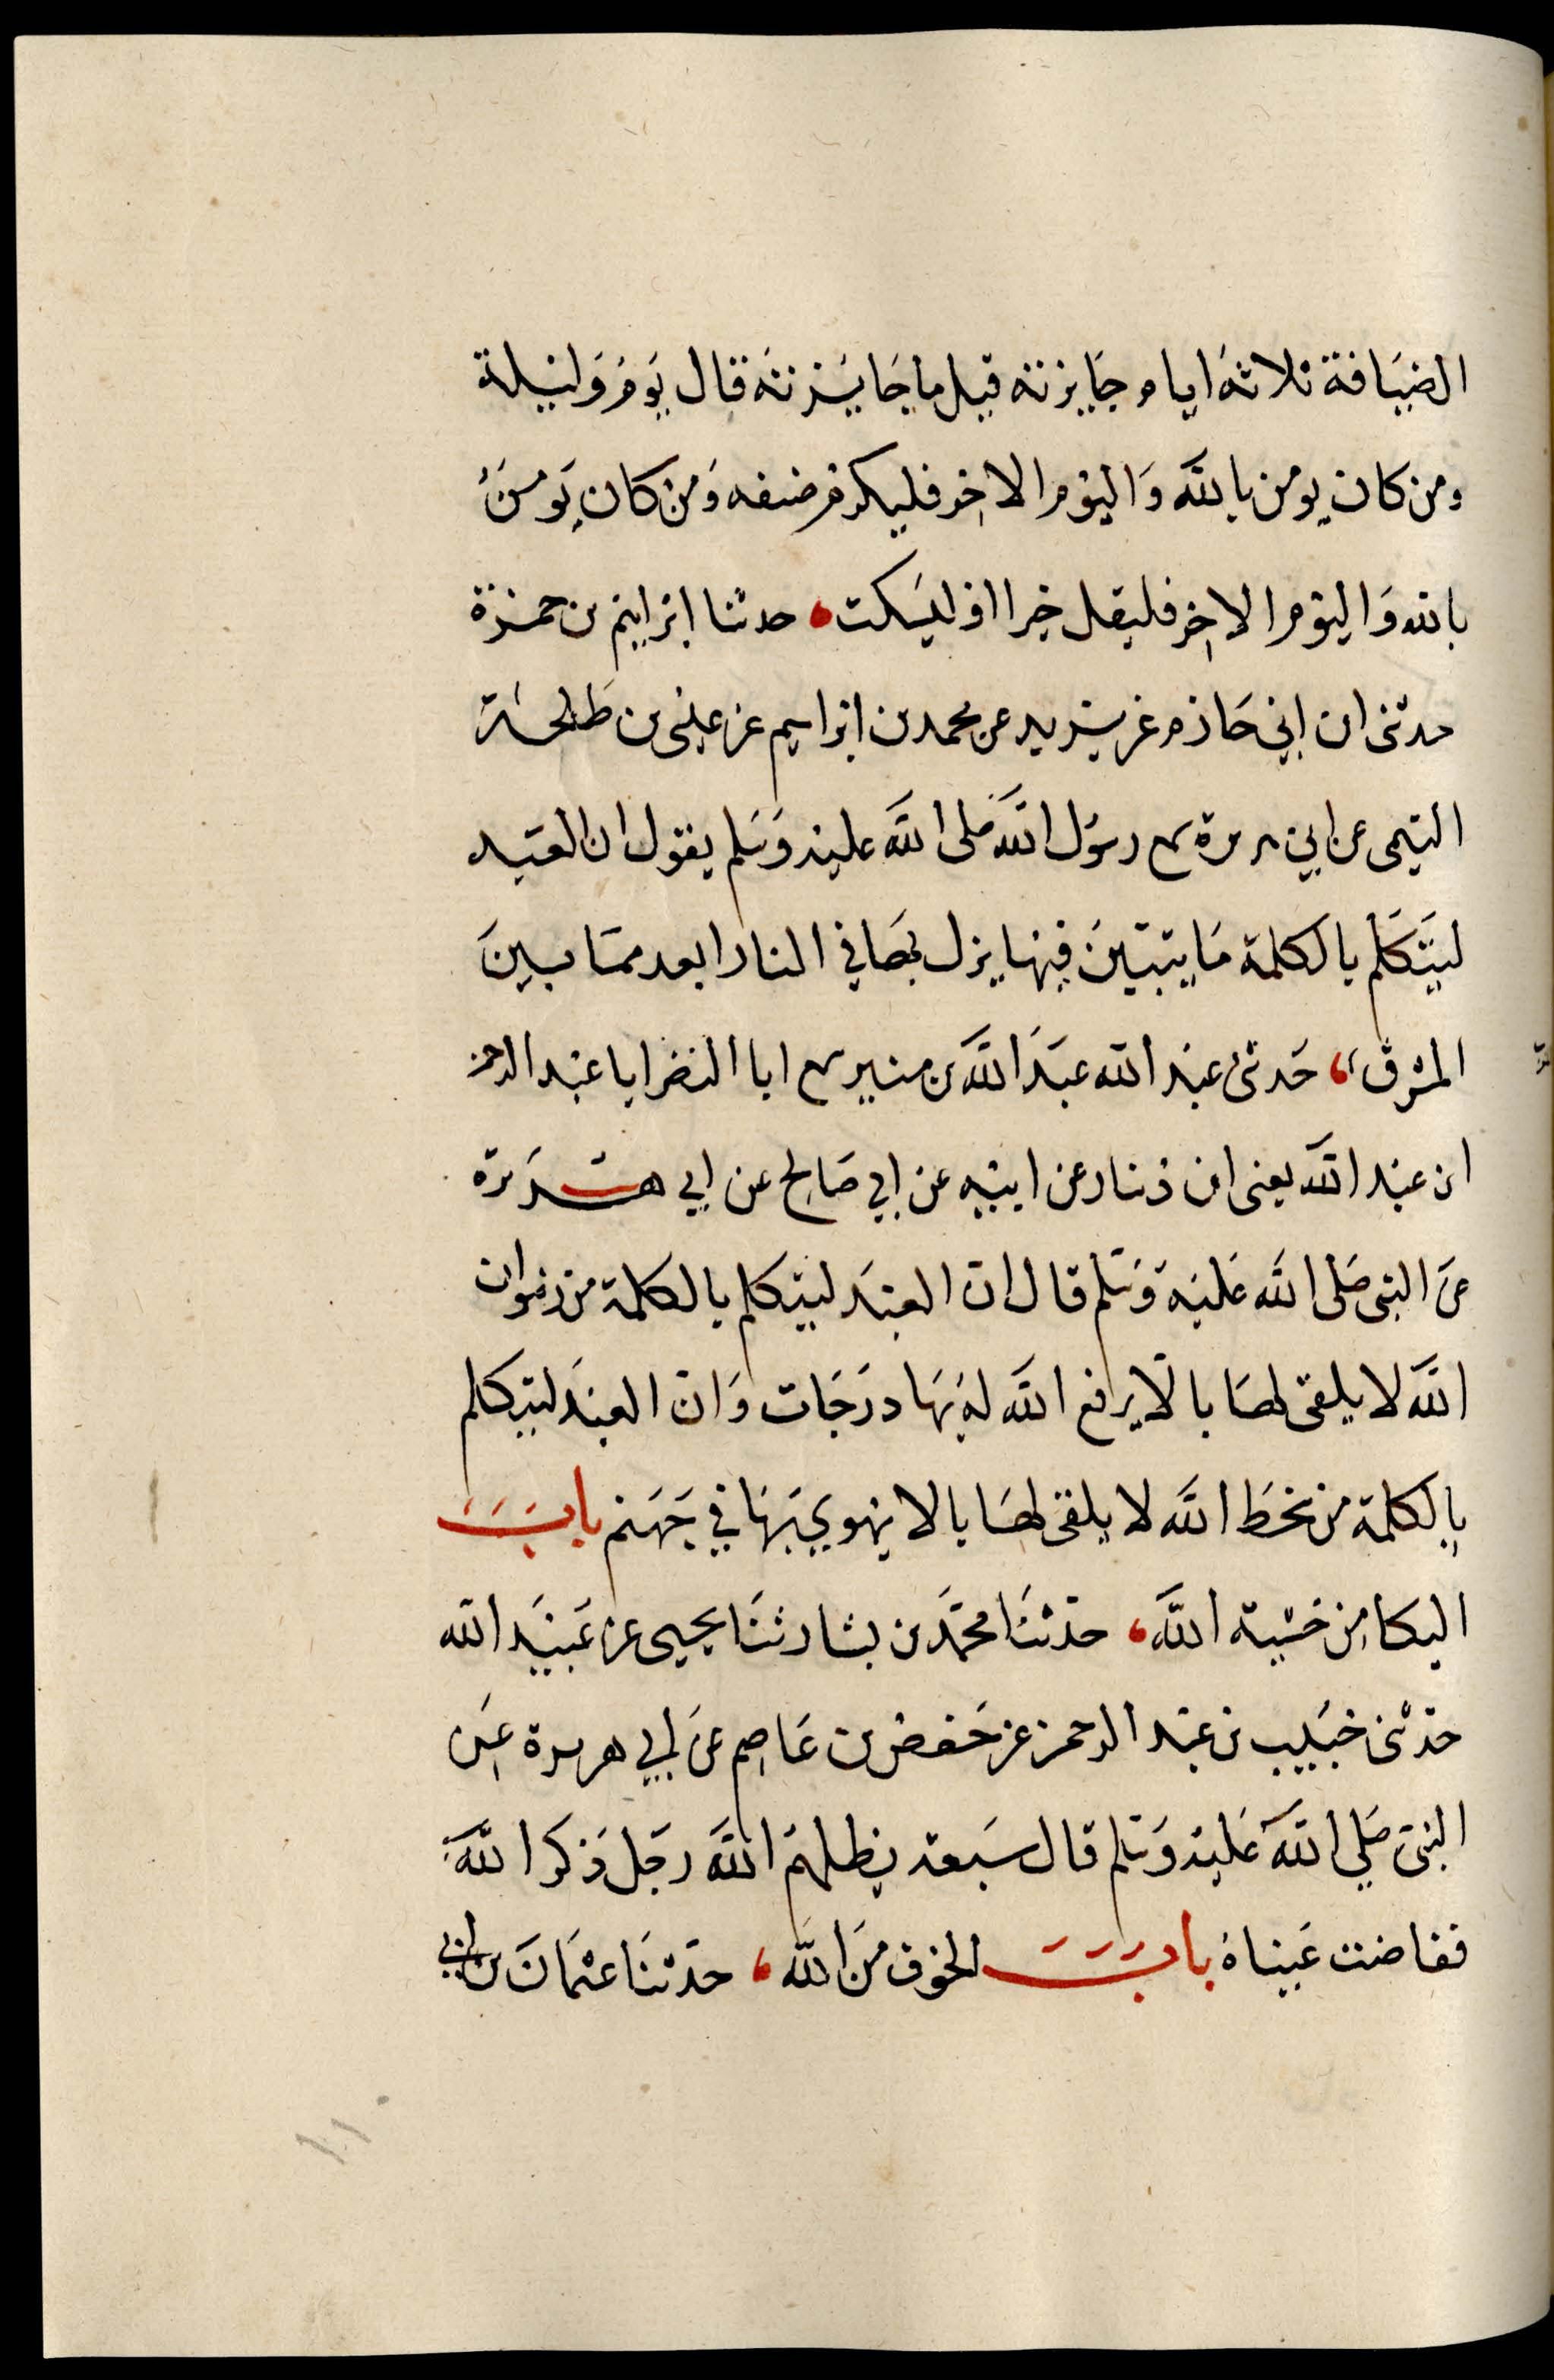 الضيافة ثلاثة ايام جايزته قيل ما جايزته قال يوم وليلة
ومن كان يومن بالله واليوم الاخر فليكرم ضيفه ومن كان يومن
بالله واليوم الاخر فليقل خيرا او ليسكت، حدثنا ابراهيم بن حمزة
حدثنى ابن ابي حازم عن يزيد عن محمد بن ابراهيم عن عيسى بن طلحة
التيمى عن ابي هريرة سمع رسول الله صلى الله عليه وسلم يقول ان العبد
ليتكلم بالكلمة ما يتبين فيها يزل بها في النار ابعد مما بين
المشرق، حدثنى عبد الله عبد الله بن منير سمع ابا النضر ابا عبد الرحمن
ابن عبد الله يعنى ابن دينار عن ابيه عن ابي صالح عن ابي هريرة
عن النبى صلى الله عليه وسلم قال ان العبد ليتكلم بالكلمة من رضوان
الله لا يلقى لها بالا يرفع الله له بها درجات وان العبد ليتكلم
بالكلمة من سخط الله لا يلقى لها بالا يهوي بها في جهنم باب
البكا من خشية الله، حدثنا محمد بن بشار ثنا يحيى عن عبيد الله
حدثنى خبيب بن عبد الرحمن عن حفص بن عاصم عن ابي هريرة عن
النبى صلي الله عليه وسلم قال سبعة يظلهم الله رجل ذكر الله
ففاضت عيناه باب الخوف من الله، حدثنا عثمان بن ابي